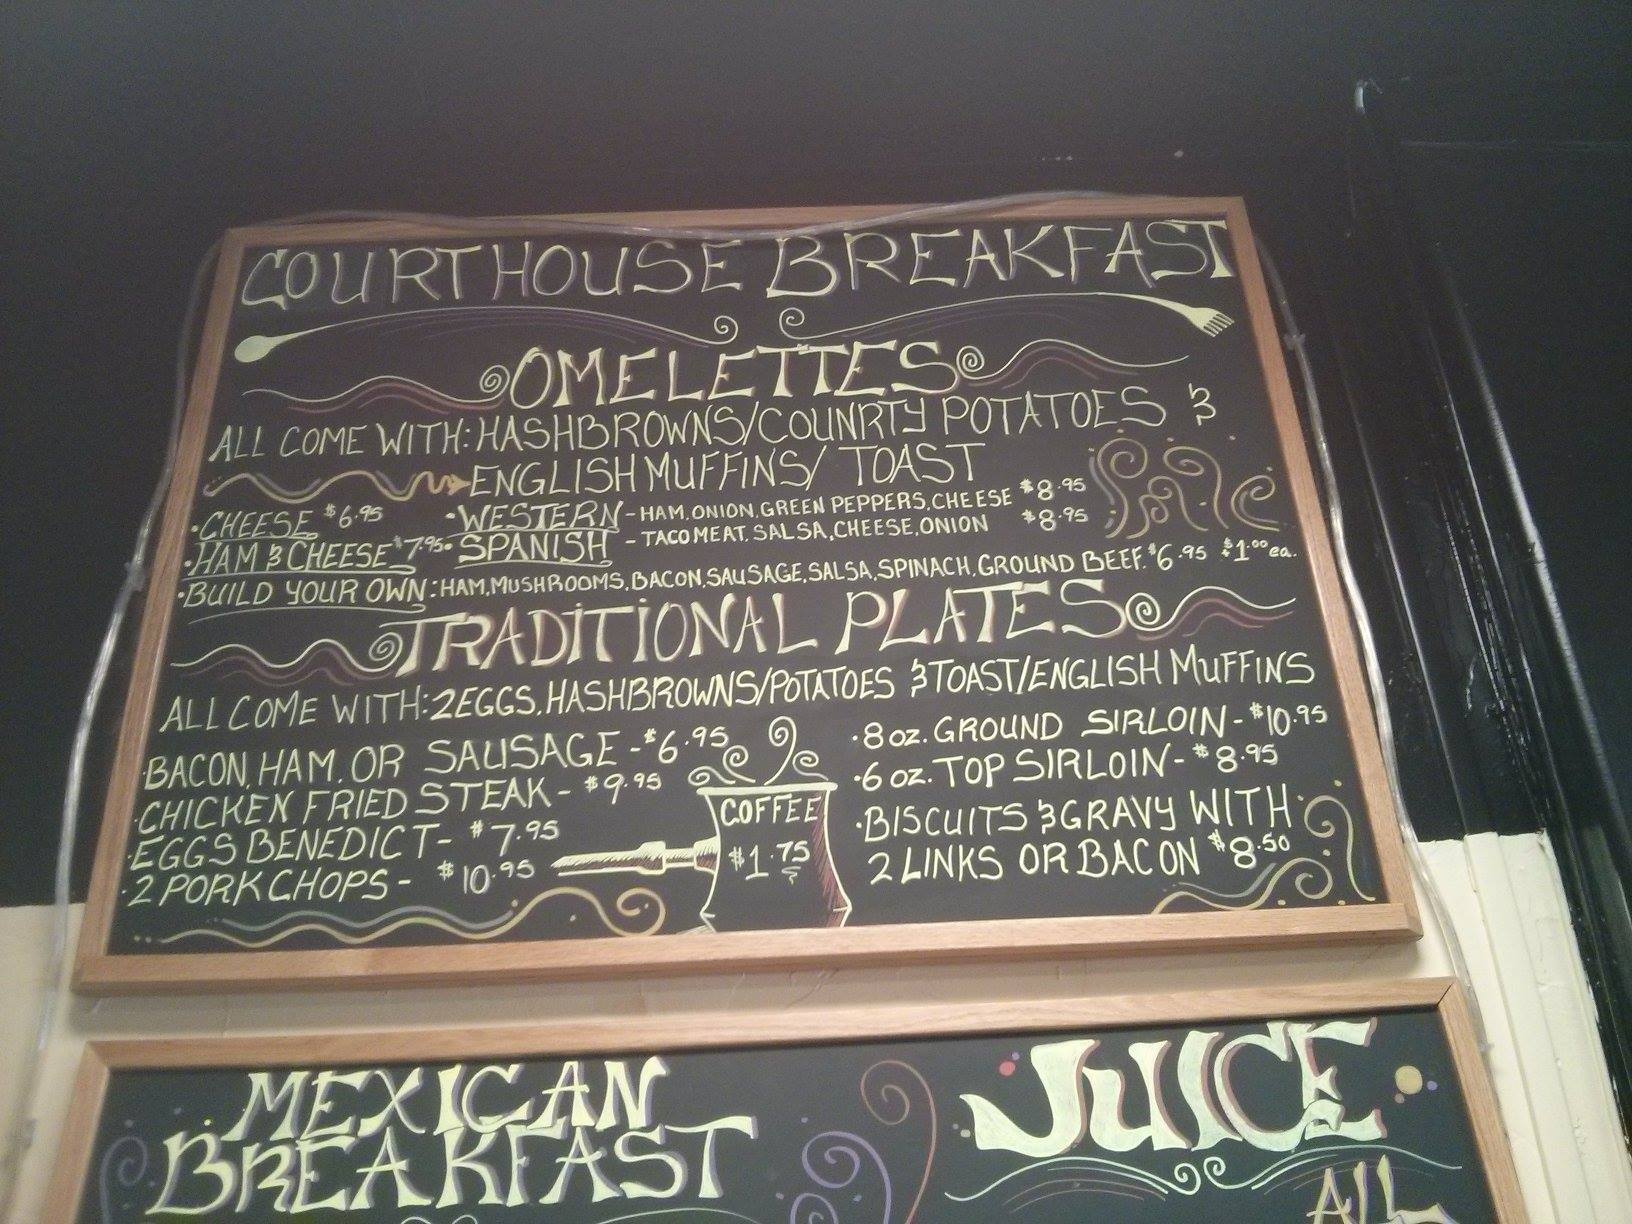 COURTHOUSE BREAKFAST
OMELETTES
ALL COME WITH: HASHBROWNS/COUNRTY POTATOES &
ENGLISH MUFFINS/ TOAST
• CHEESE $6.95 • WESTERN - HAM, ONION, GREEN PEPPERS, CHEESE $8.95
• HAM & CHEESE $7.95 • SPANISH - TACO MEAT, SALSA, CHEESE, ONION $8.95
• BUILD YOUR OWN: HAM, MUSHROOMS, BACON, SAUSAGE, SALSA, SPINACH, GROUND BEEF. $6.95 $1.00 ea.
TRADITIONAL PLATES
ALL COME WITH: 2 EGGS, HASHBROWNS/POTATOES & TOAST/ENGLISH MUFFINS
• BACON, HAM, OR SAUSAGE - $6.95
• CHICKEN FRIED STEAK - $9.95
• EGGS BENEDICT - $7.95
• 2 PORK CHOPS - $10.95
COFFEE
$1.75
• 8 oz. GROUND SIRLOIN - $10.95
• 6 oz. TOP SIRLOIN - $8.95
• BISCUITS & GRAVY WITH
2 LINKS OR BACON $8.50
MEXICAN
BREAKFAST
JUICE
ALL